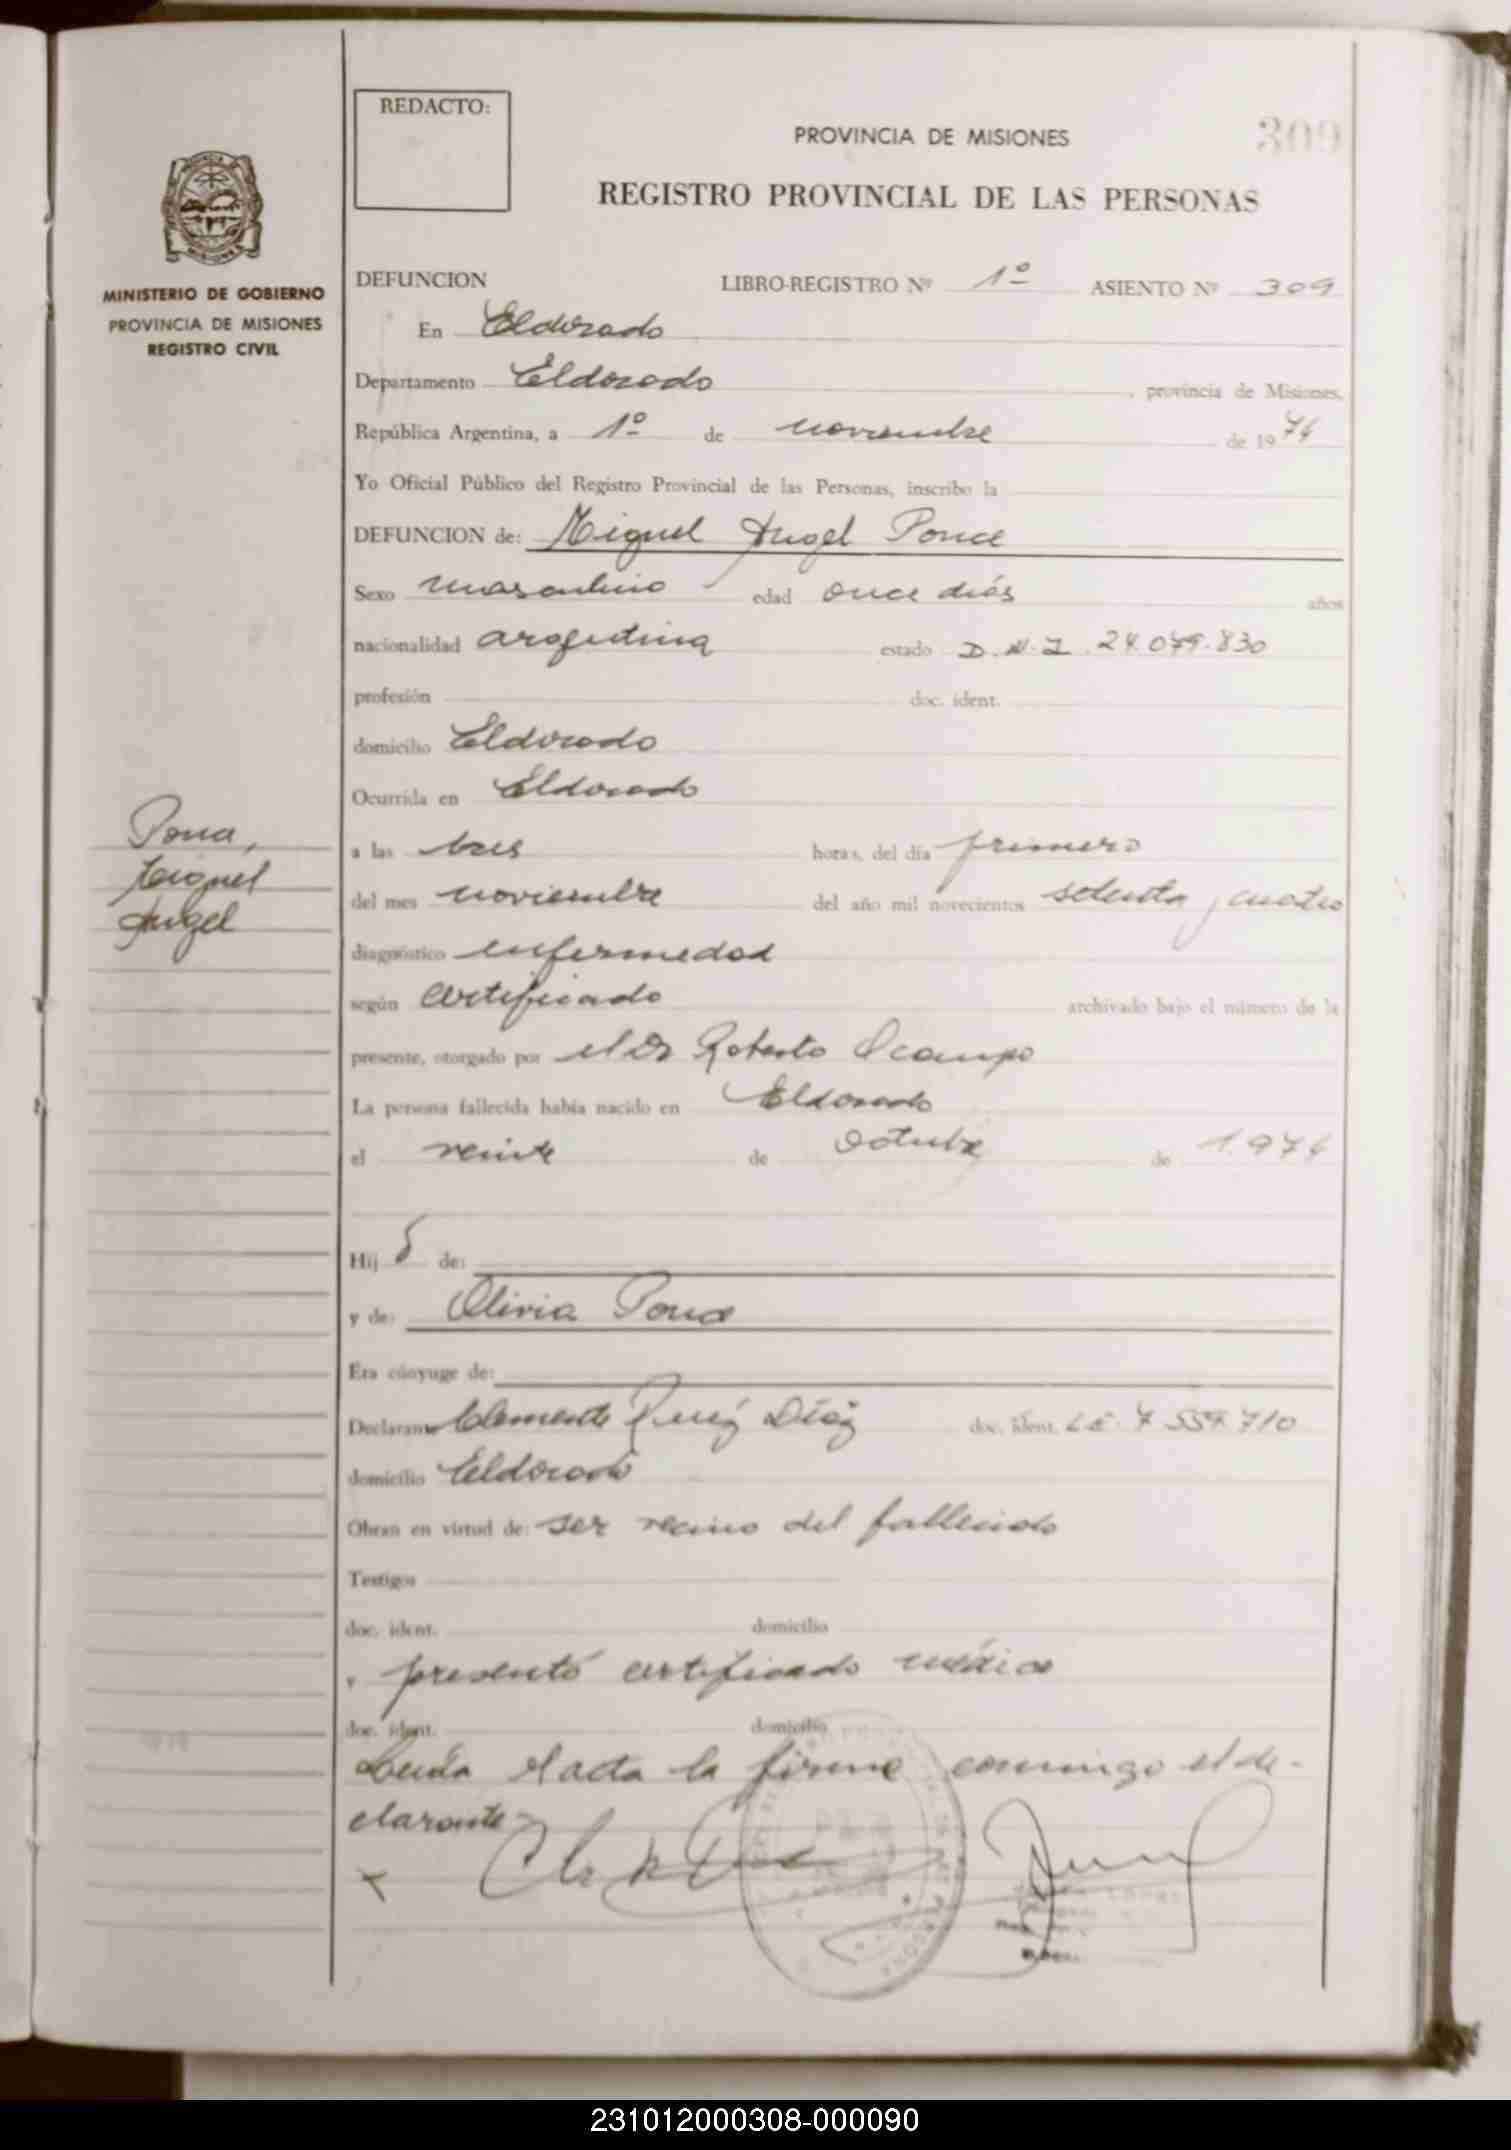 REDACTO:
PROVINCIA DE MISIONES
309
REGISTRO PROVINCIAL DE LAS PERSONAS
MINISTERIO DE GOBIERNO
PROVINCIA DE MISIONES
REGISTRO CIVIL
DEFUNCION LIBRO-REGISTRO Nº 1º ASIENTO Nº 309
En Eldorado
Departamento Eldorado, provincia de Misiones,
República Argentina, a 1º de noviembre de 1974
Yo Oficial Público del Registro Provincial de las Personas, inscribo la
DEFUNCION de: Miguel Angel Ponce
Sexo masculino edad once días años
nacionalidad argentina estado D.N.I. 24.079.830
profesión doc. ident.
domicilio Eldorado
Ocurrida en Eldorado
Ponce,
Miguel
Angel
a las tres horas, del día primero
del mes noviembre del año mil novecientos setenta y cuatro
diagnóstico enfermedad
según certificado archivado bajo el número de la
presente, otorgado por el Dr Roberto Ocampo
La persona fallecida había nacido en Eldorado
el veinte de octubre de 1.974
Hij o de:
y de: Olivia Ponce
Era cónyuge de:
Declarante Clemente Ruiz Díaz doc. ident. L.E. 7 559.710
domicilio Eldorado
Obran en virtud de: ser vecino del fallecido
Testigos
doc. ident. domicilio
y presentó certificado médico
doc. ident. domicilio
Leída el acta la firma conmigo el de-
clarante-
231012000308-000090